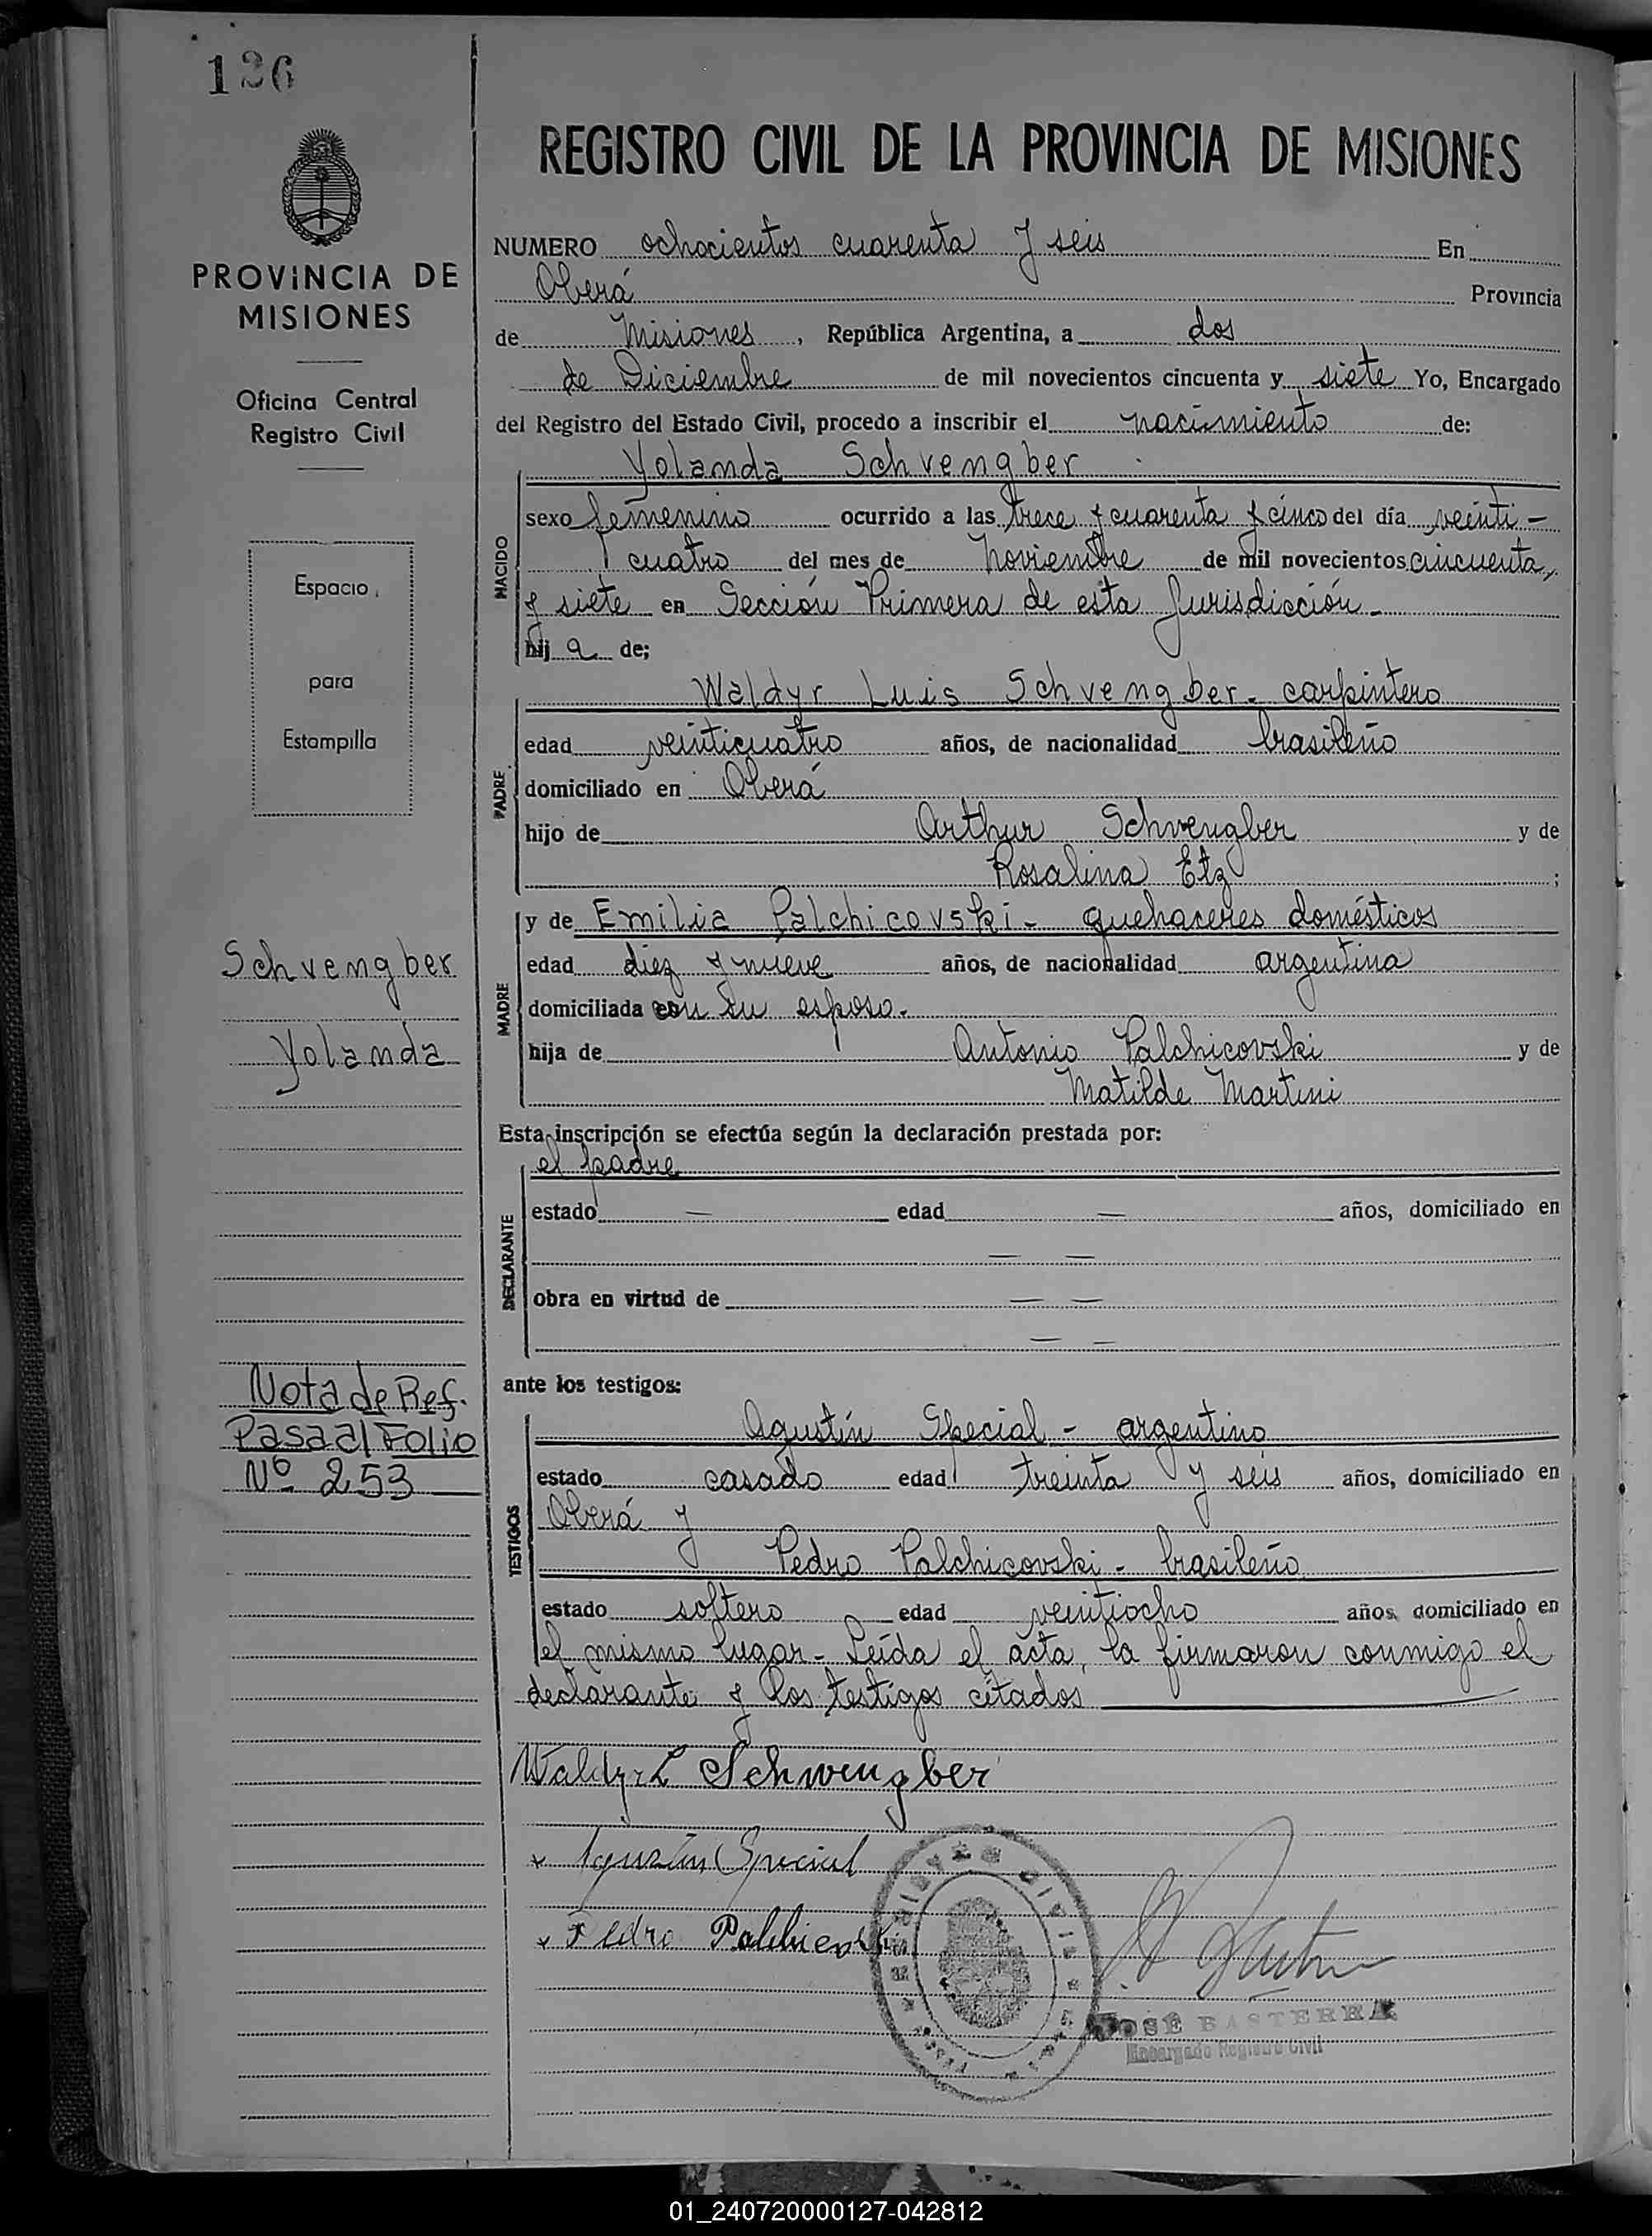 126
PROVINCIA DE
MISIONES
Oficina Central
Registro Civil
Espacio
para
Estampilla
Schvengber
Yolanda
Nota de Ref.
Pasa al Folio
Nº 253
REGISTRO CIVIL DE LA PROVINCIA DE MISIONES
NUMERO ochocientos cuarenta y seis En
Oberá Provincia
de Misiones, República Argentina, a dos
de Diciembre de mil novecientos cincuenta y siete Yo, Encargado
del Registro del Estado Civil, procedo a inscribir el nacimiento de:
Yolanda Schvengber
NACIDO
sexo femenino ocurrido a las trece y cuarenta y cinco del día veinti-
cuatro del mes de Noviembre de mil novecientos cincuenta
y siete en Sección Primera de esta Jurisdicción.
hij a de;
Waldyr Luis Schvengber - carpintero
PADRE
edad veinticuatro años, de nacionalidad brasileño
domiciliado en Oberá
hijo de Arthur Schvengber y de
Rosalina Etz;
y de Emilia Palchicovski - quehaceres domésticos
MADRE
edad diez y nueve años, de nacionalidad argentina
domiciliada con su esposo.
hija de Antonio Palchicovski y de
Matilde Martini
Esta inscripción se efectúa según la declaración prestada por:
el padre
DECLARANTE
estado — edad — años, domiciliado en
— —
obra en virtud de — —
— —
ante los testigos:
TESTIGOS
Agustín Special - argentino
estado casado edad treinta y seis años, domiciliado en
Oberá y
Pedro Palchicovski - brasileño
estado soltero edad veintiocho años, domiciliado en
el mismo lugar - Leída el acta, la firmaron conmigo el
declarante y los testigos citados
Waldyr L Schwengber
Agustin Special
Pedro
JOSÉ BASTERRA
Encargado Registro Civil
01_240720000127-042812